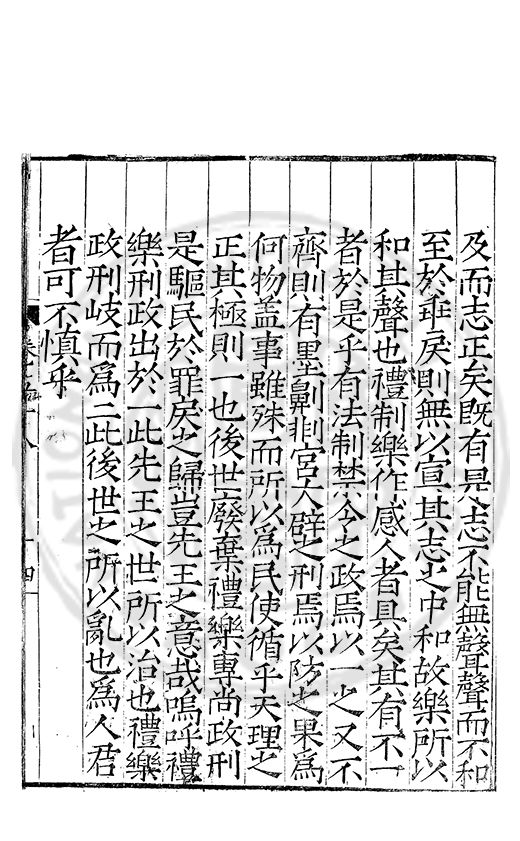 及而志正矣既有是志不能無聲聲而不和
至於乖戾則無以宣其志之中和故樂所以
和其聲也禮制樂作感人者具矣其有不一
者於是乎有法制禁令之政焉以一之又不
齊則有墨劓剕宮大辟之刑焉以防之果為
何物盖事雖殊而所以為民使循乎天理之
正其極則一也後世廢棄禮樂專尚政刑
是驅民於罪戾之歸豈先王之意哉嗚呼禮
樂刑政出於一此先王之世所以治也禮樂
政刑岐而為二此後世之所以亂也為人君
者可不慎乎
十四